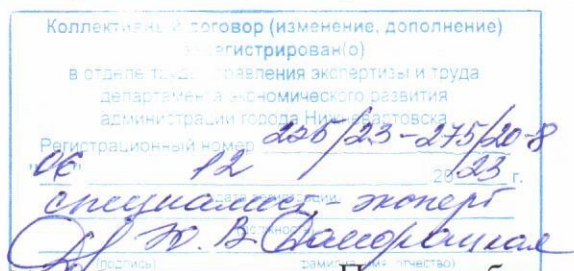 Коллективный договор (изменение, дополнение)
зарегистрирован(о)
в отделе труда управления экспертизы и труда
департамента экономического развития
администрации города Нижневартовска
Регистрационный номер 226/23-275/20-8
06 12 2023 г.
специалист - эксперт
Ж. В.
(подпись) (фамилия, имя, отчество)